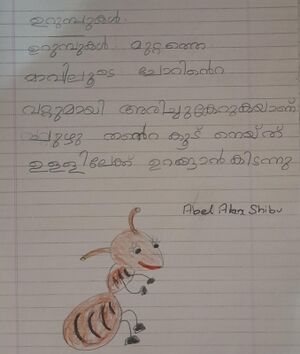 ഉറുമ്പുകൾ
ഉറുമ്പുകൾ മുറ്റത്തെ
മാവിലൂടെ ചോറിന്റെ
വറ്റുമായി അരിച്ചുകേറുകയാണ്
പുഴു തന്റെ കൂട് നെയ്ത്
ഉള്ളിലേക്ക് ഉറങ്ങാൻ കിടന്നു
Abel Alan Shibu